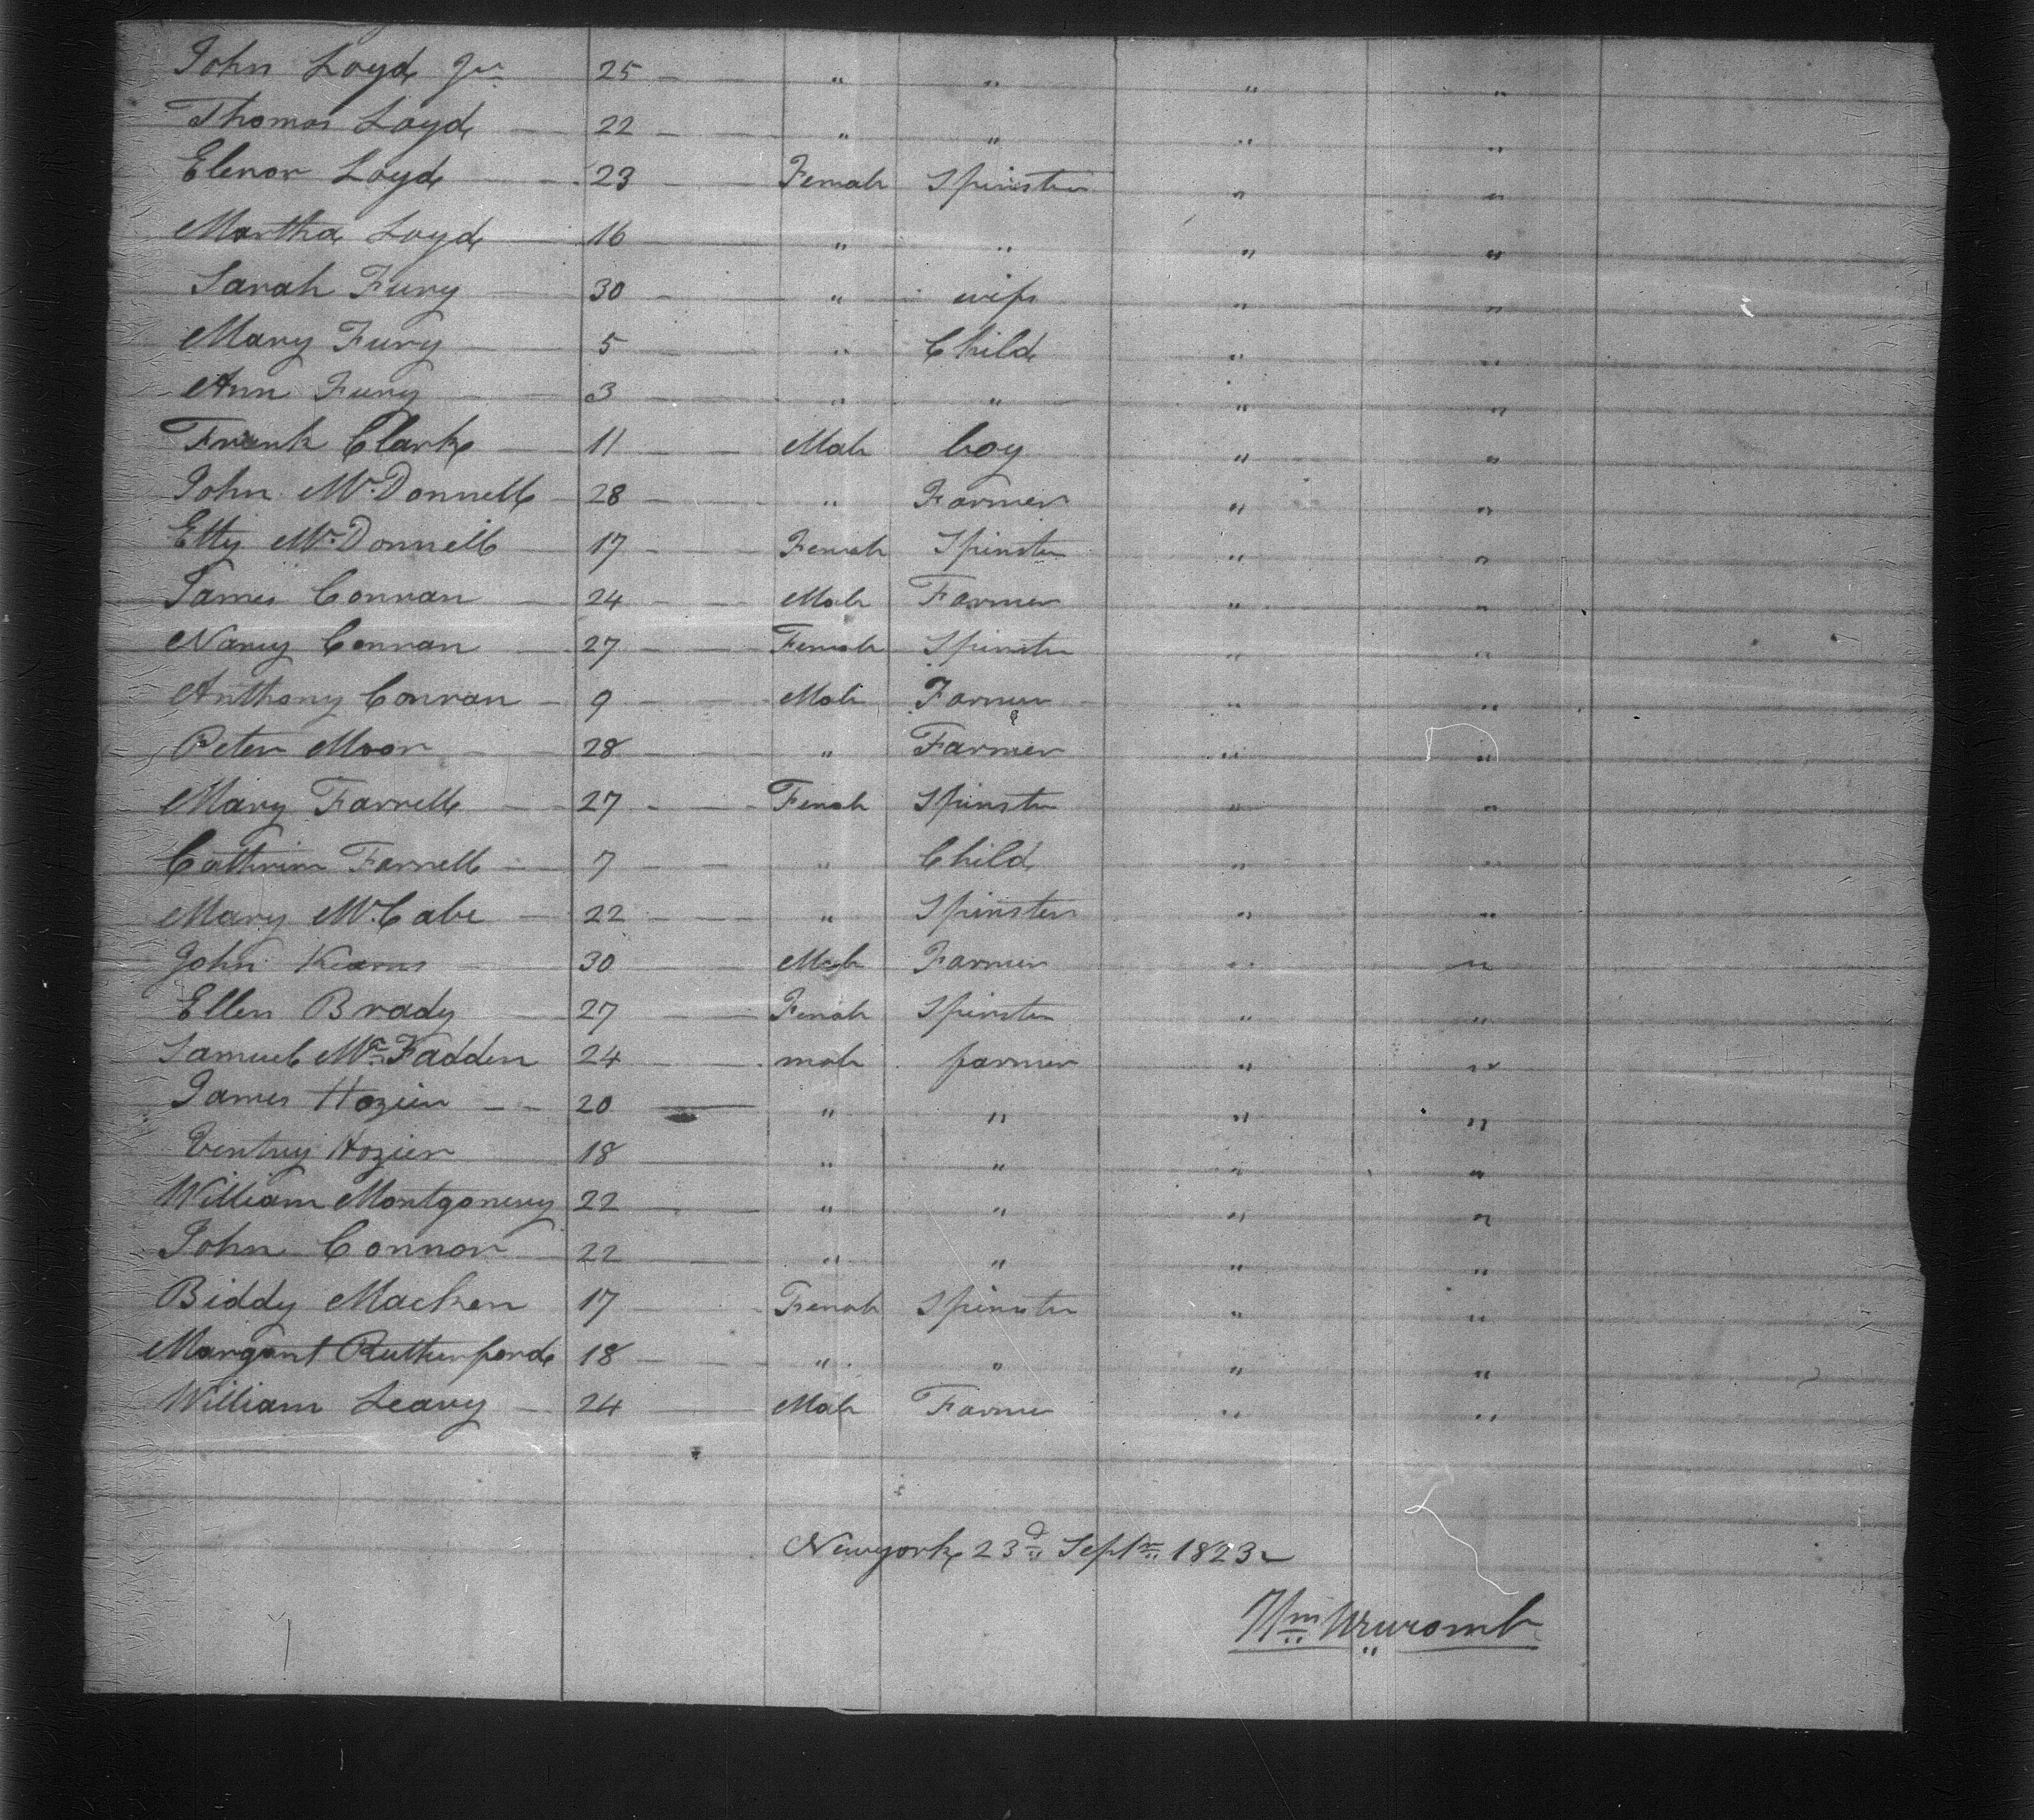 John Loyd Jnr 25 " " " "
Thomas Loyd 22 " " " "
Elenor Loyd 23 Female Spinster " "
Martha Loyd 16 " " " "
Sarah Fury 30 " wife " "
Mary Fury 5 " Child " "
Ann Fury 3 " " " "
Frank Clark 11 Male boy " "
John McDonnell 28 " Farmer " "
Etty McDonnell 17 Female Spinster " "
James Conran 24 Male Farmer " "
Nancy Conran 27 Female Spinster " "
Anthony Conran 9 Male Farmer " "
Peter Moor 28 " Farmer " "
Mary Farrell 27 Female Spinster " "
Cathrin Farrell 7 " Child " "
Mary McCabe 22 " Spinster " "
John Kearns 30 Male Farmer " "
Ellen Brady 27 Female Spinster " "
Samuel McFadden 24 male farmer " "
James Hozier 20 " " " "
Hozier 18 " " " "
William Montgomery 22 " " " "
John Connor 22 " " " "
Biddy Macken 17 Female Spinster " "
Margaret Rutherford 18 " " " "
William Leavy 24 Male Farmer " "
Newyork 23d Septr 1823
Wm